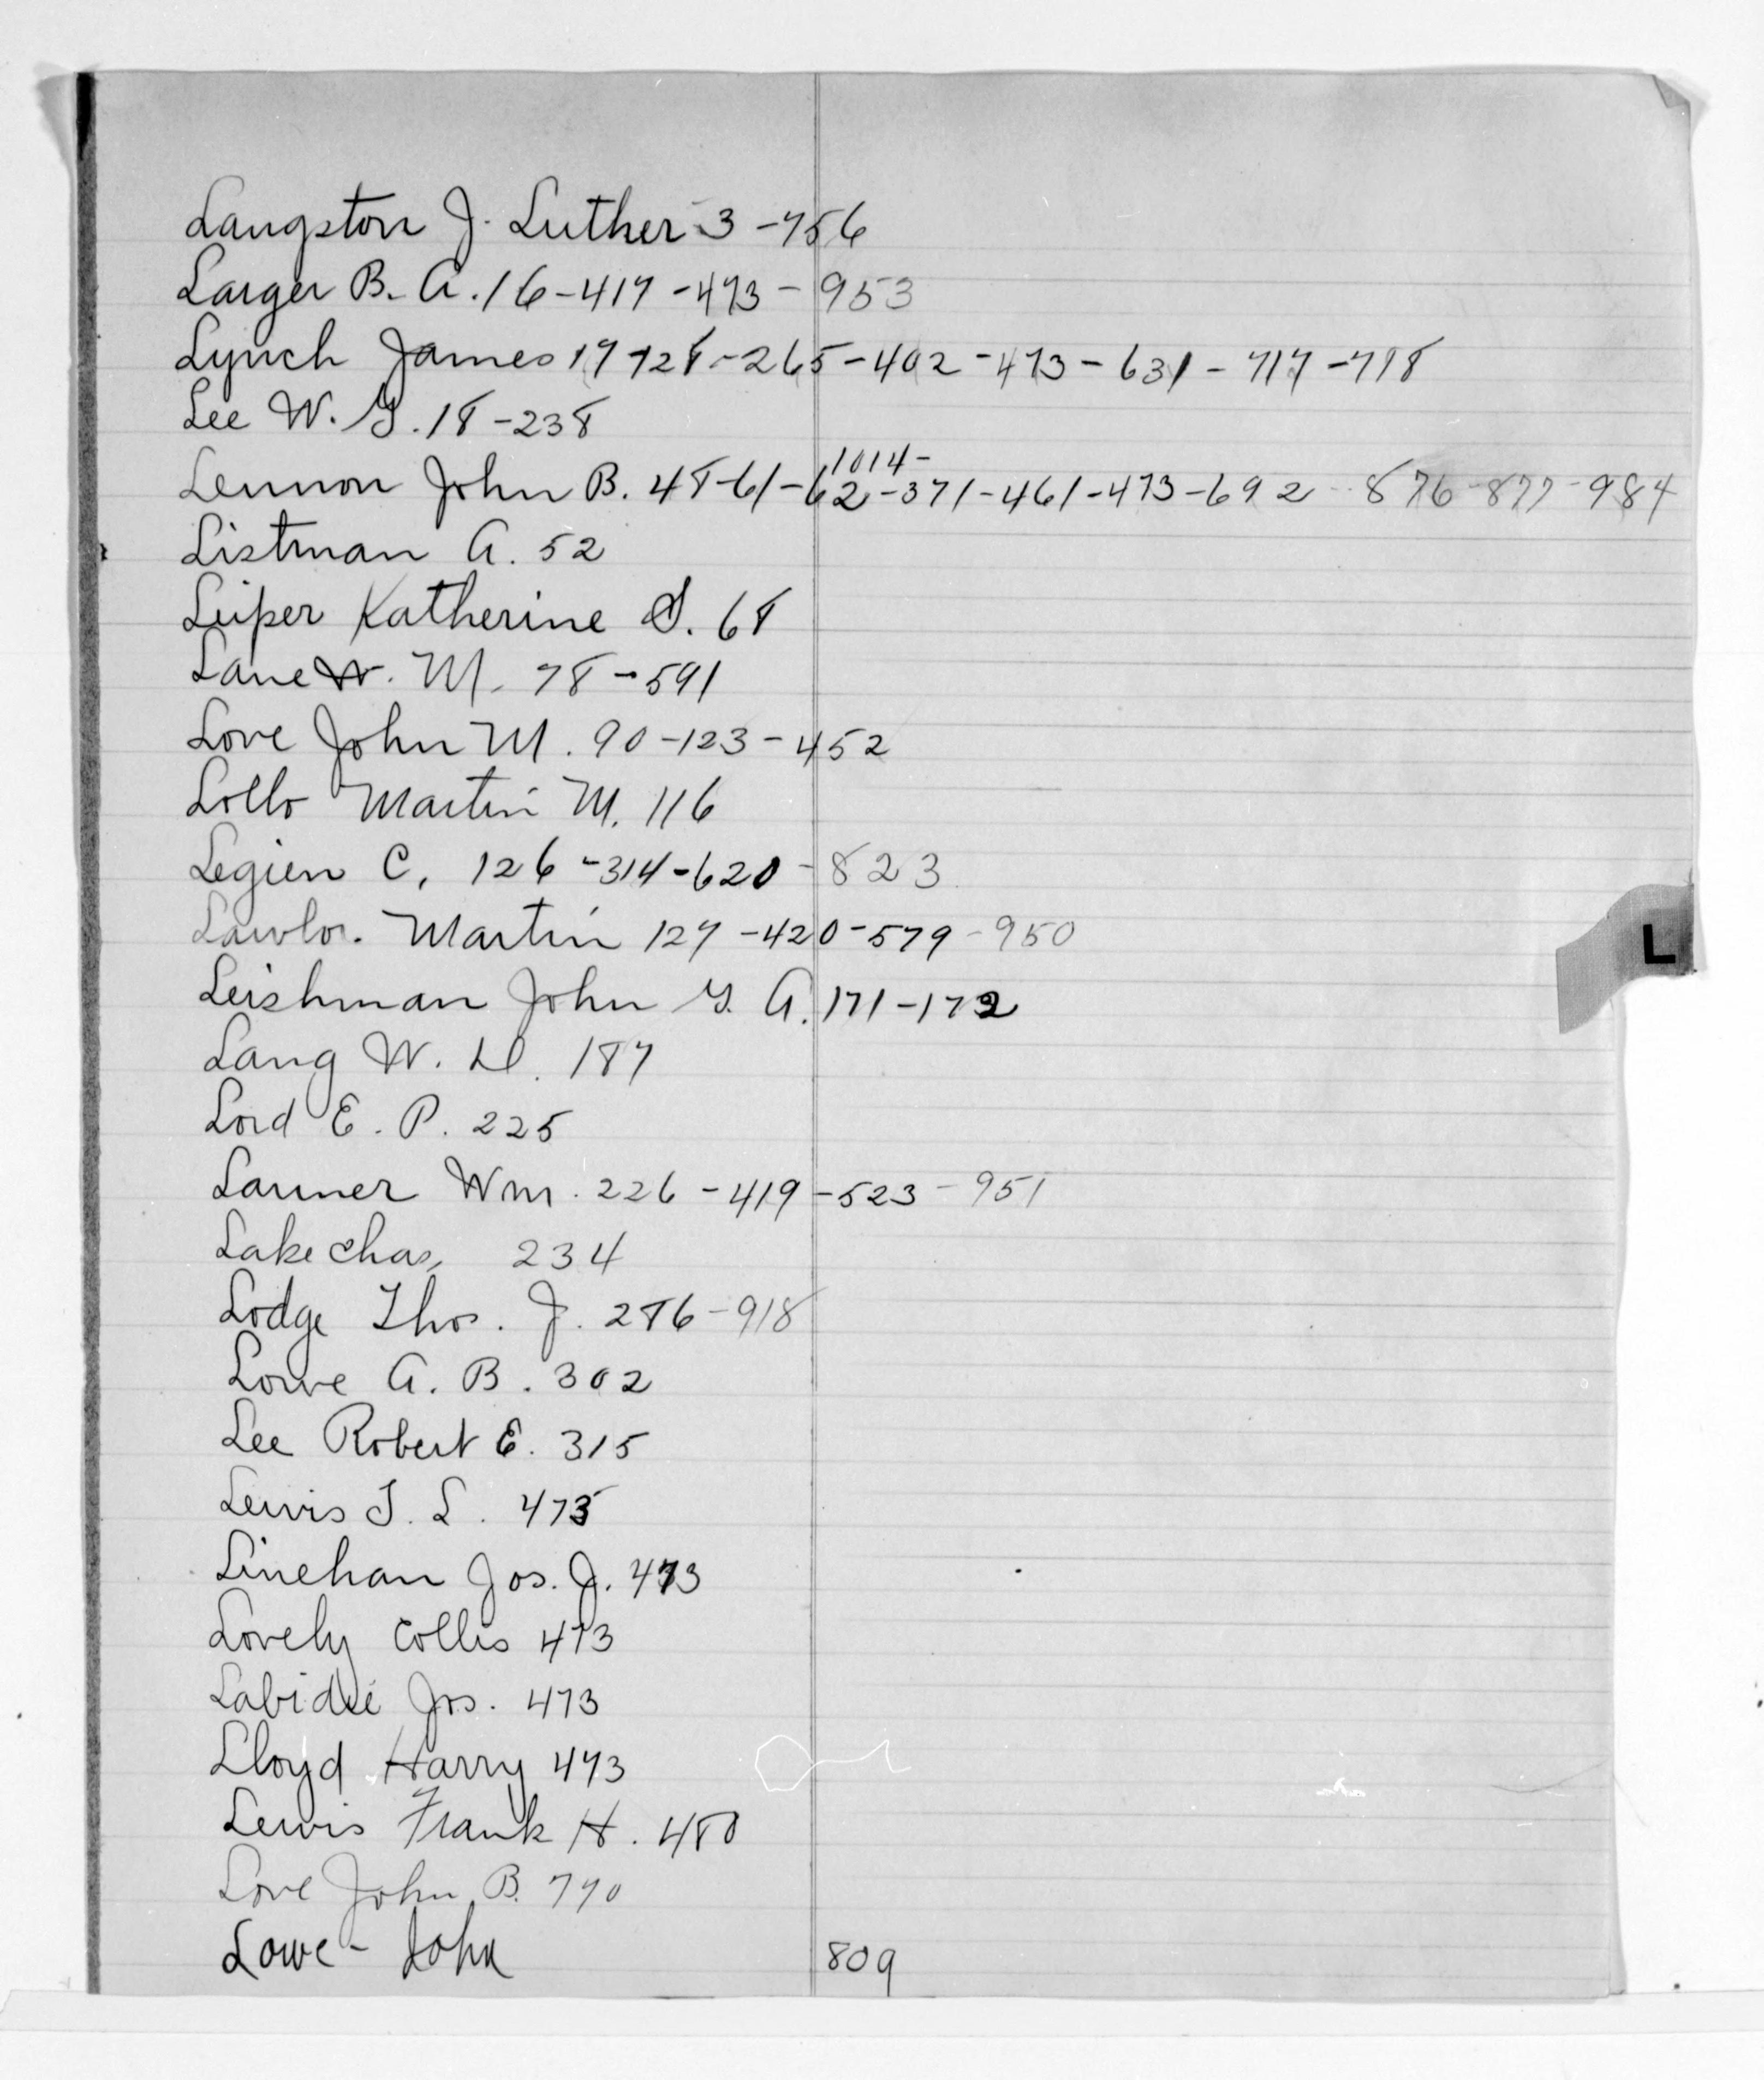 Langston J. Luther 3-756
Larger B. A. 16-417-473-953
Lynch James 17-128-265-402-473-631-717-718
Lee W. G. 18-238
1014-
Lennon John B. 48-61-62-371-461-473-692 876-877-984
Listman A. 52
Leiper Katherine S. 68
Lane W. M. 78-591
Love John M. 90-123-452
Lollo Martin M. 116
Legien C. 126-314-620-823
Lawlor Martin 127-420-579-950
Leishman John G. A. 171-172
Lang W. D. 187
Lord E. P. 225
Launer Wm. 226-419-523-951
Lake Chas. 234
Lodge Thos. J. 286-918
Lowe A. B. 302
Lee Robert E. 315
Lewis T. L. 473
Linehan Jos. J. 473
Lovely Collis 473
Jos. 473
Lloyd Harry 473
Lewis Frank H. 480
Love John B. 770
Lowe - John 809
L